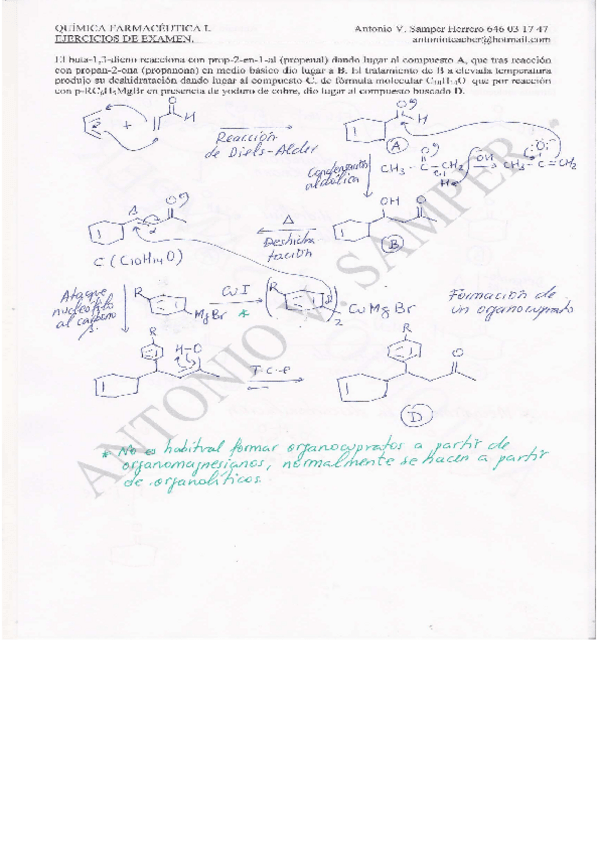 QUÍMICA FARMACÉUTICA I. Antonio V. Samper Herrero 646 03 17 47
EJERCICIOS DE EXAMEN. antoninteacher@hotmail.com
El buta-1,3-dieno reacciona con prop-2-en-1-al (propenal) dando lugar al compuesto A, que tras reacción
con propan-2-ona (propanona) en medio básico dio lugar a B. El tratamiento de B a elevada temperatura
produjo su deshidratación dando lugar al compuesto C, de fórmula molecular C₁₀H₁₄O que por reacción
con p-RC₆H₅MgBr en presencia de yoduro de cobre, dio lugar al compuesto buscado D.
+ O H
Reacción
de Diels-Alder
O H
A
Condensación
aldólica
CH₃ C CH₂ OH CH₃ C = CH₂
OH O
B
Δ
Deshidra
tación
O
C (C₁₀H₁₄O)
Ataque
nucleófilo
al carbono
β.
R MgBr CuI * R 2 CuMgBr
Formación de
un organocuprato
R H-O
T-C-E
R O
D
* No es habitual formar organocupratos a partir de
organomagnesianos, normalmente se hacen a partir
de organolíticos.
ANTONIO V. SAMPER